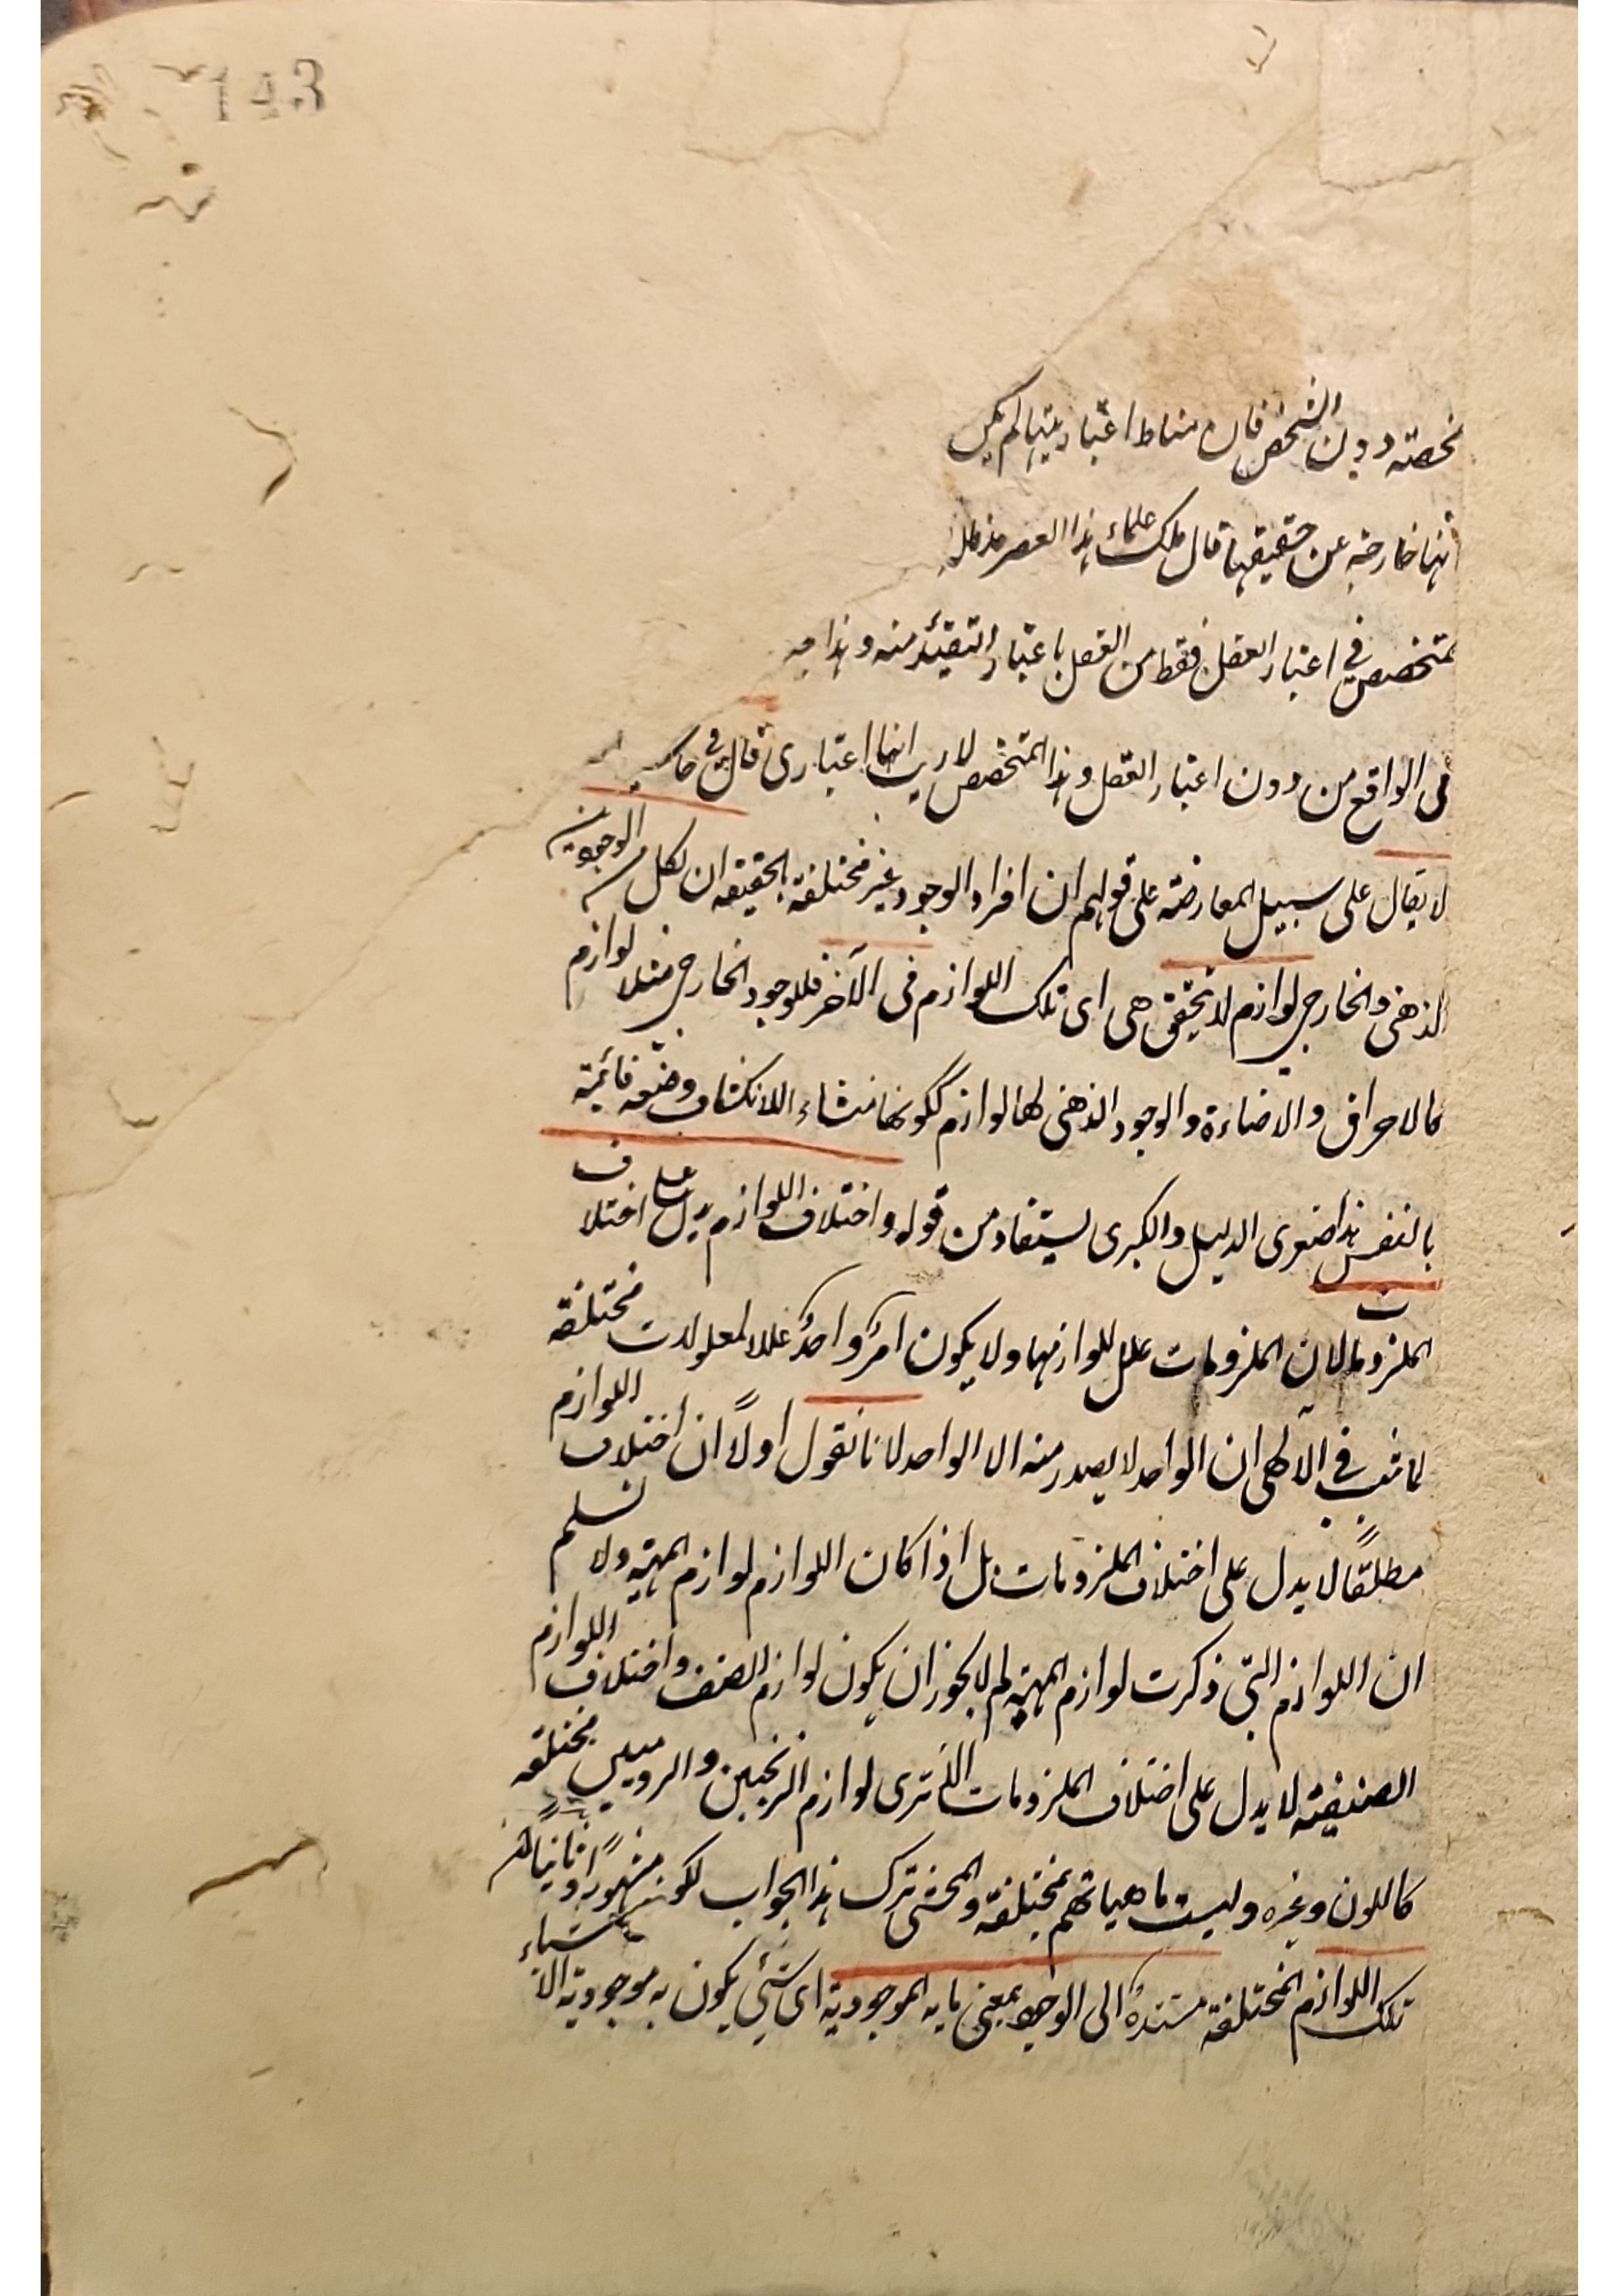 143
دون الشخص فان مناط اعتباريتها لم يكن
انها خارجة عن حقيقيتها قال ملك علماء هذا العصر مد ظله
فى اعتبار العقل فقط من العقل باعتبار التقيّد منه وهذا
فى الواقع من دون اعتبار العقل وهذا المتخصص لا ريب انها اعتبارى قال فى
لا يقال على سبيل المعارضة على قولهم ان افراد الوجود غير مختلفة الحقيقة ان لكل من الوجودين
الذهنى والخارجى لوازم لا تتحقق هى اى تلك اللوازم فى الآخر فللوجود الخارجى مثلا لوازم
كالاحراق والاضاءة والوجود الذهنى لها لوازم ككونها منشاء للانكشاف وصفة قائمة
بالنفس هذا صغرى الدليل والكبرى يستفاد من قوله واختلاف اللوازم يدل على اختلاف
الملزومات لان الملزومات علل للوازمها ولا يكون امرٌ واحدٌ عللا لمعلولات مختلفة
لما ثبت فى الآلهى ان الواحد لا يصدر منه الا الواحد لانا نقول اولاً ان اختلاف اللوازم
مطلقًا لا يدل على اختلاف الملزومات بل اذا كان اللوازم لوازم المهية ولا نسلم
ان اللوازم التى ذكرت لوازم المهية لم لا يجوز ان يكون لوازم الصنف واختلاف اللوازم
الصنفية لا يدل على اختلاف الملزومات الا ترى لوازم الزنجيين والروميين مختلفة
كاللون وغيره وليست ماهياتهم بمختلفة والمحشى ترك هذا الجواب لكونه مشهورًا وثانيًا
تلك اللوازم المختلفة مستندة الى الوجود بمعنى ما به الموجودية اى شئى يكون به موجودية الاشياء